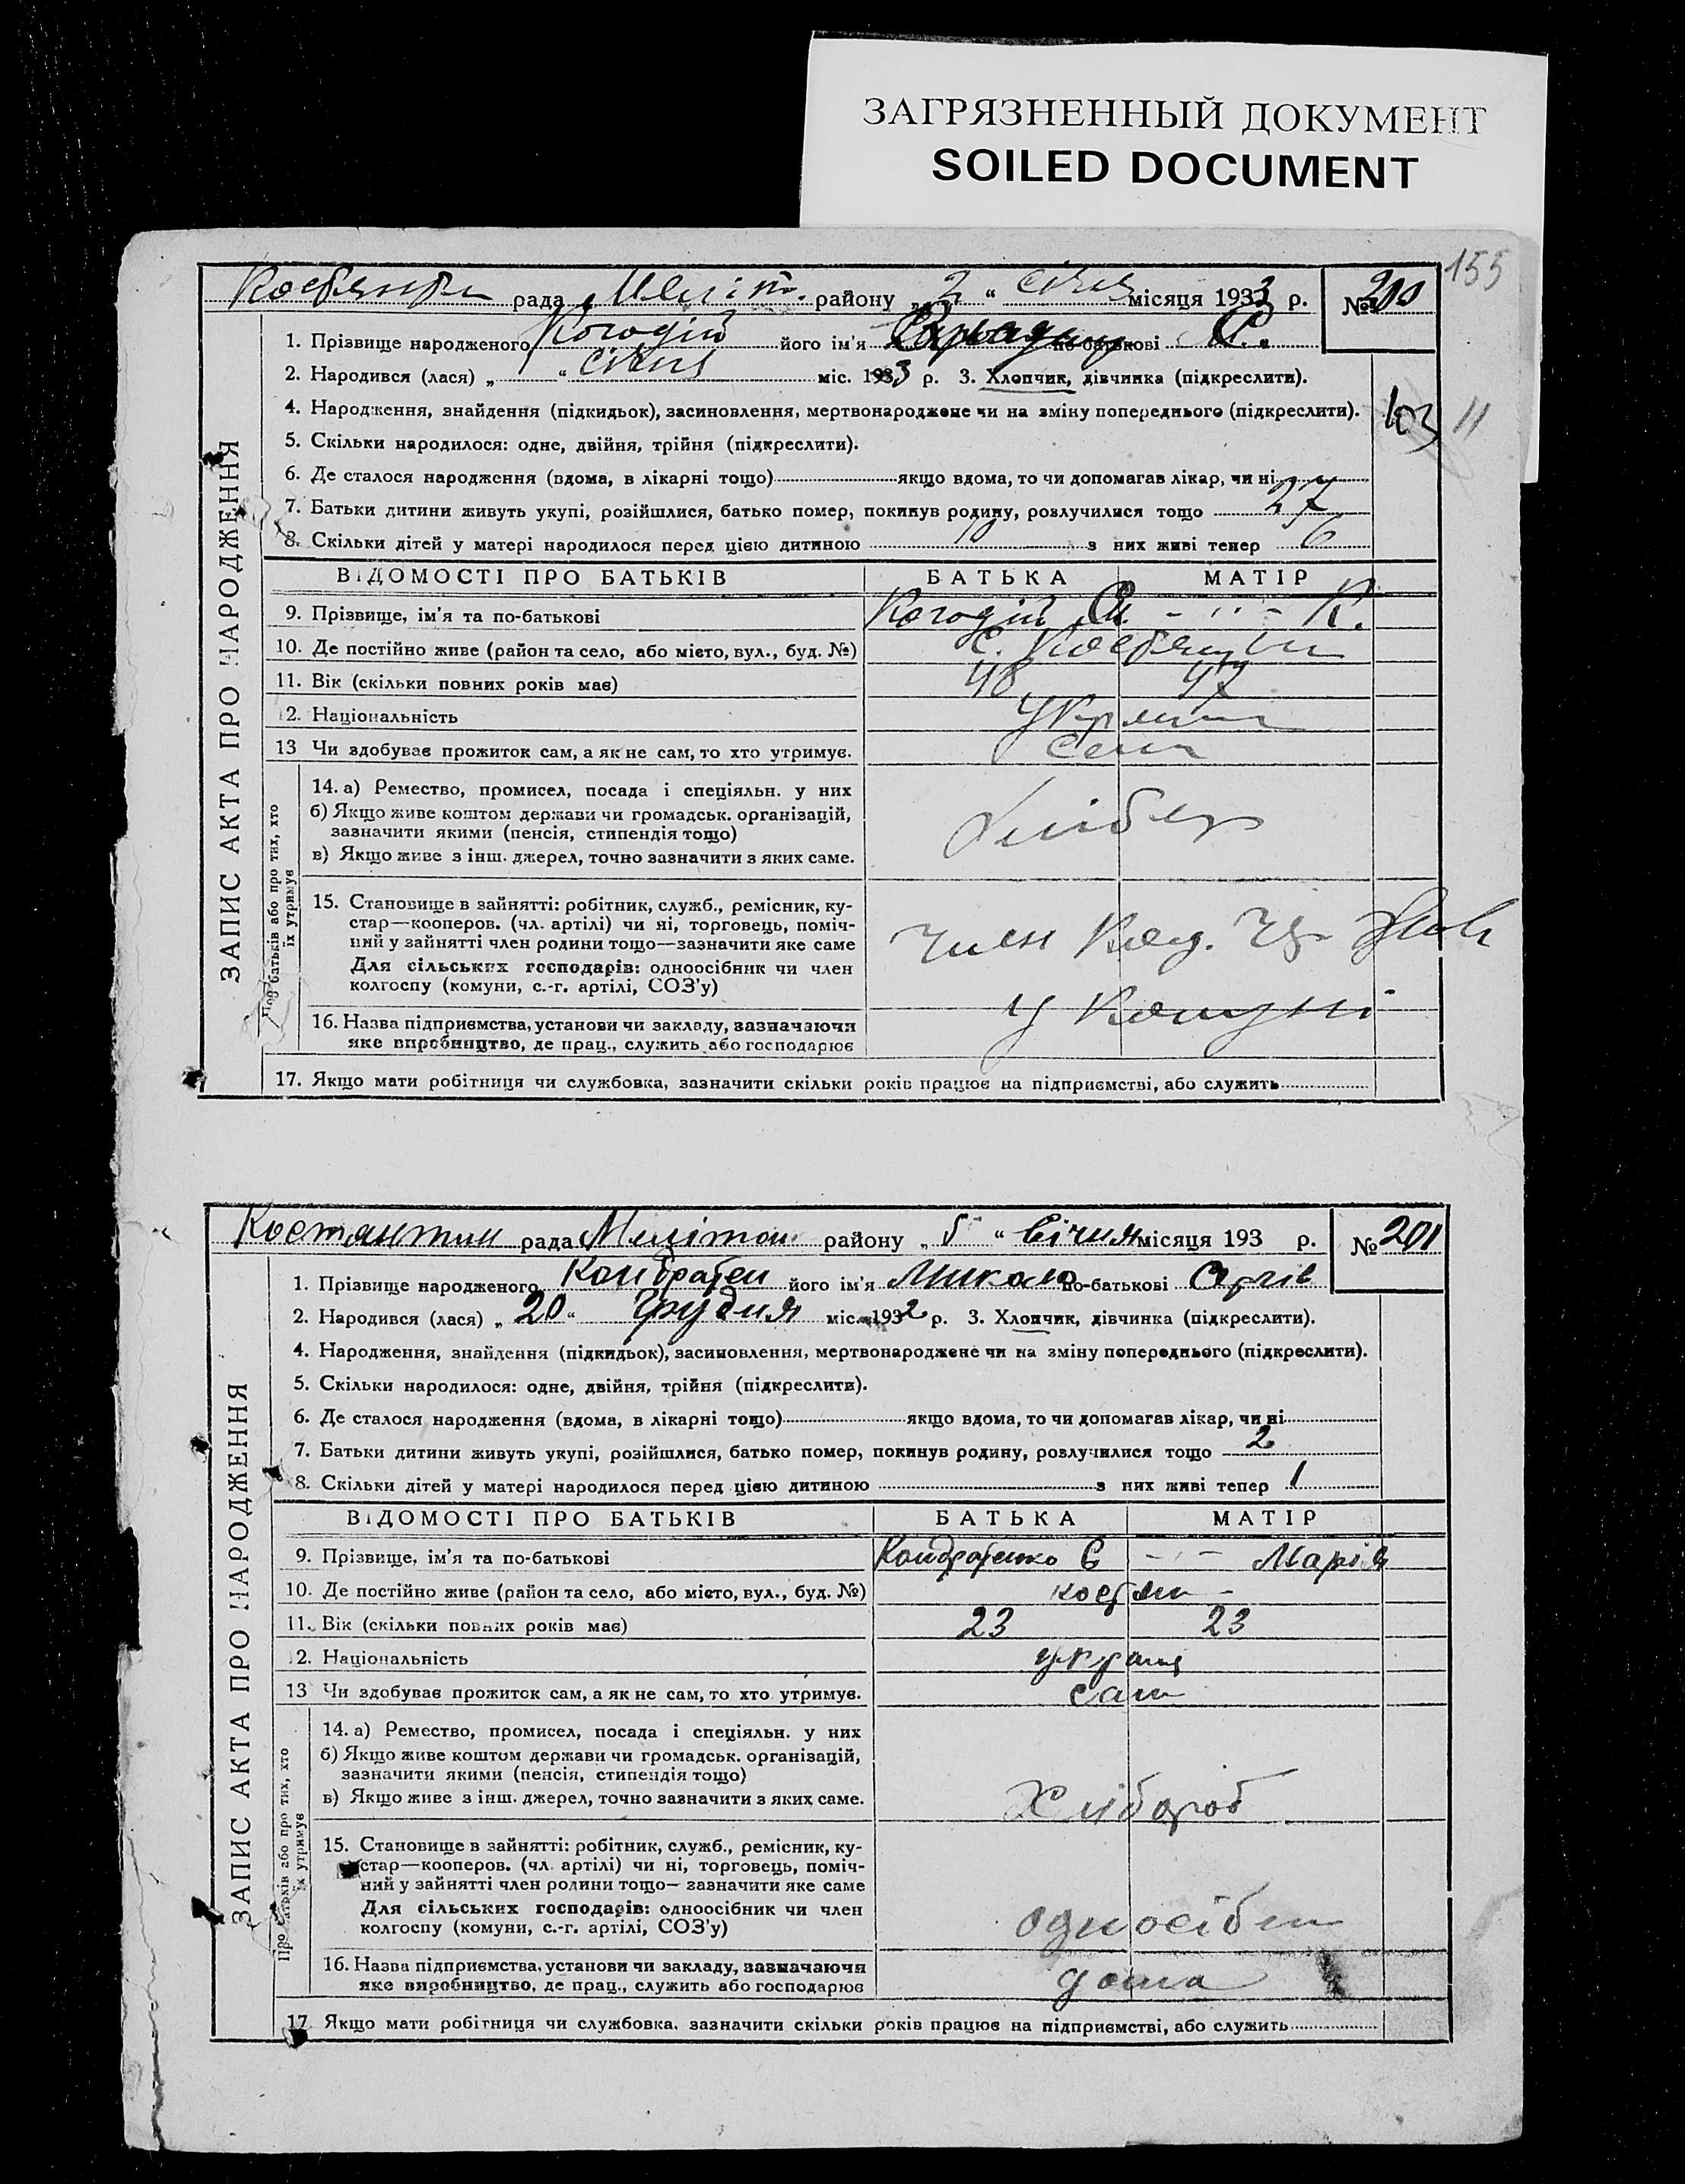 ЗАГРЯЗНЕННЫЙ ДОКУМЕНТ
SOILED DOCUMENT
155
рада Меліт. району „ 2 “ січня місяця 1933 р. № 200
1. Прізвище народженого його ім'я по-батькові
2. Народився (лася) „ “ січня міс. 1933 р. 3. Хлопчик, дівчинка (підкреслити).
4. Народження, знайдення (підкидьок), засиновлення, мертвонароджене чи на зміну попереднього (підкреслити).
103 11
5. Скільки народилося: одне, двійня, трійня (підкреслити).
6. Де сталося народження (вдома, в лікарні тощо) якщо вдома, то чи допомагав лікар, чи ні
7. Батьки дитини живуть укупі, розійшлися, батько помер, покинув родину, розлучилися тощо 27
8. Скільки дітей у матері народилося перед цією дитиною 10 з них живі тепер 6
ВІДОМОСТІ ПРО БАТЬКІВ БАТЬКА МАТІР
9. Прізвище, ім'я та по-батькові К.
10. Де постійно живе (район та село, або місто, вул., буд. №) с.
11. Вік (скільки повних років має) 48 47
12. Національність
13 Чи здобуває прожиток сам, а як не сам, то хто утримує. сам
14. а) Ремество, промисел, посада і спеціяльн. у них
б) Якщо живе коштом держави чи громадськ. організацій,
зазначити якими (пенсія, стипендія тощо)
в) Якщо живе з інш. джерел, точно зазначити з яких саме.
15. Становище в зайнятті: робітник, служб., ремісник, ку-
стар—кооперов. (чл. артілі) чи ні, торговець, поміч-
ний у зайнятті член родини тощо—зазначити яке саме
Для сільських господарів: одноосібник чи член
колгоспу (комуни, с.-г. артілі, СОЗ'у)
член
16. Назва підприємства, установи чи закладу, зазначаючи
яке виробництво, де прац., служить або господарює
у Комуні
17. Якщо мати робітниця чи службовка, зазначити скільки років працює на підприємстві, або служить
ЗАПИС АКТА ПРО НАРОДЖЕННЯ
Про батьків або про тих, хто
їх утримує
Костянтин рада Мелітоп району „ 5 “ Січня місяця 193 р. № 201
1. Прізвище народженого Кондратен його ім'я Микола по-батькові Сергів
2. Народився (лася) „ 20 “ Грудня міс. 1932 р. 3. Хлопчик, дівчинка (підкреслити).
4. Народження, знайдення (підкидьок), засиновлення, мертвонароджене чи на зміну попереднього (підкреслити).
5. Скільки народилося: одне, двійня, трійня (підкреслити).
6. Де сталося народження (вдома, в лікарні тощо) якщо вдома, то чи допомагав лікар, чи ні
7. Батьки дитини живуть укупі, розійшлися, батько помер, покинув родину, розлучилися тощо 2
8. Скільки дітей у матері народилося перед цією дитиною з них живі тепер 1
ВІДОМОСТІ ПРО БАТЬКІВ БАТЬКА МАТІР
9. Прізвище, ім'я та по-батькові Кондратенко С -"- Марія
10. Де постійно живе (район та село, або місто, вул., буд. №) костян
11. Вік (скільки повних років має) 23 23
12. Національність
13 Чи здобуває прожиток сам, а як не сам, то хто утримує. сам
14. а) Ремество, промисел, посада і спеціяльн. у них
б) Якщо живе коштом держави чи громадськ. організацій,
зазначити якими (пенсія, стипендія тощо)
в) Якщо живе з інш. джерел, точно зазначити з яких саме.
Хлібороб
15. Становище в зайнятті: робітник, служб., ремісник, ку-
стар—кооперов. (чл. артілі) чи ні, торговець, поміч-
ний у зайнятті член родини тощо—зазначити яке саме
Для сільських господарів: одноосібник чи член
колгоспу (комуни, с.-г. артілі, СОЗ'у)
односібн
16. Назва підприємства, установи чи закладу, зазначаючи
яке виробництво, де прац., служить або господарює
дома
17 Якщо мати робітниця чи службовка, зазначити скільки років працює на підприємстві, або служить
ЗАПИС АКТА ПРО НАРОДЖЕННЯ
Про батьків або про тих, хто
їх утримує